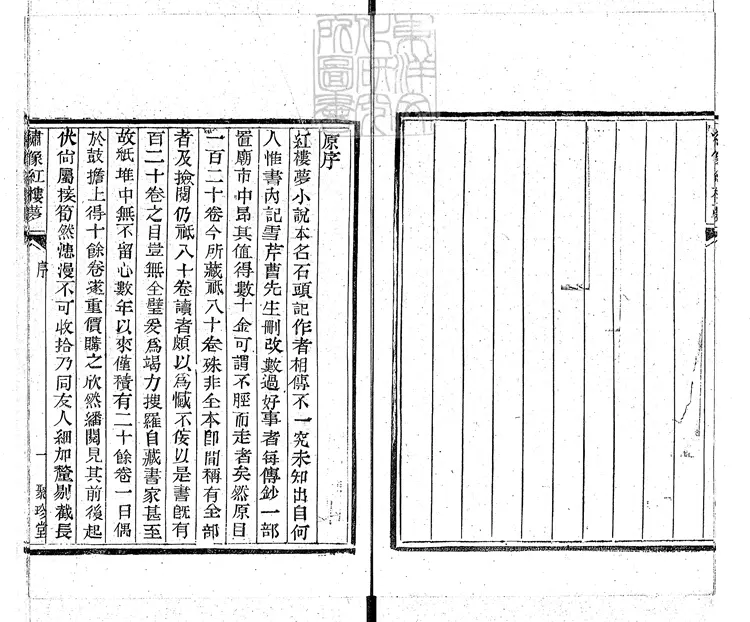 東洋文
化研究
所圖書
原序
紅樓夢小說本名石頭記作者相傳不一究未知出自何
人惟書內記雪芹曹先生刪改數過好事者每傳鈔一部
置廟市中昂其值得數十金可謂不脛而走者矣然原目
一百二十卷今所藏祗八十卷殊非全本卽間稱有全部
者及檢閱仍祗八十卷讀者頗以爲憾不佞以是書旣有
百二十卷之目豈無全璧爰爲竭力搜羅自藏書家甚至
故紙堆中無不留心數年以來僅積有二十餘卷一日偶
於鼓擔上得十餘卷遂重價購之欣然繙閱見其前後起
伏尙屬接筍然漶漫不可收拾乃同友人細加釐剔截長
繡像紅樓夢
序
一
聚珍堂